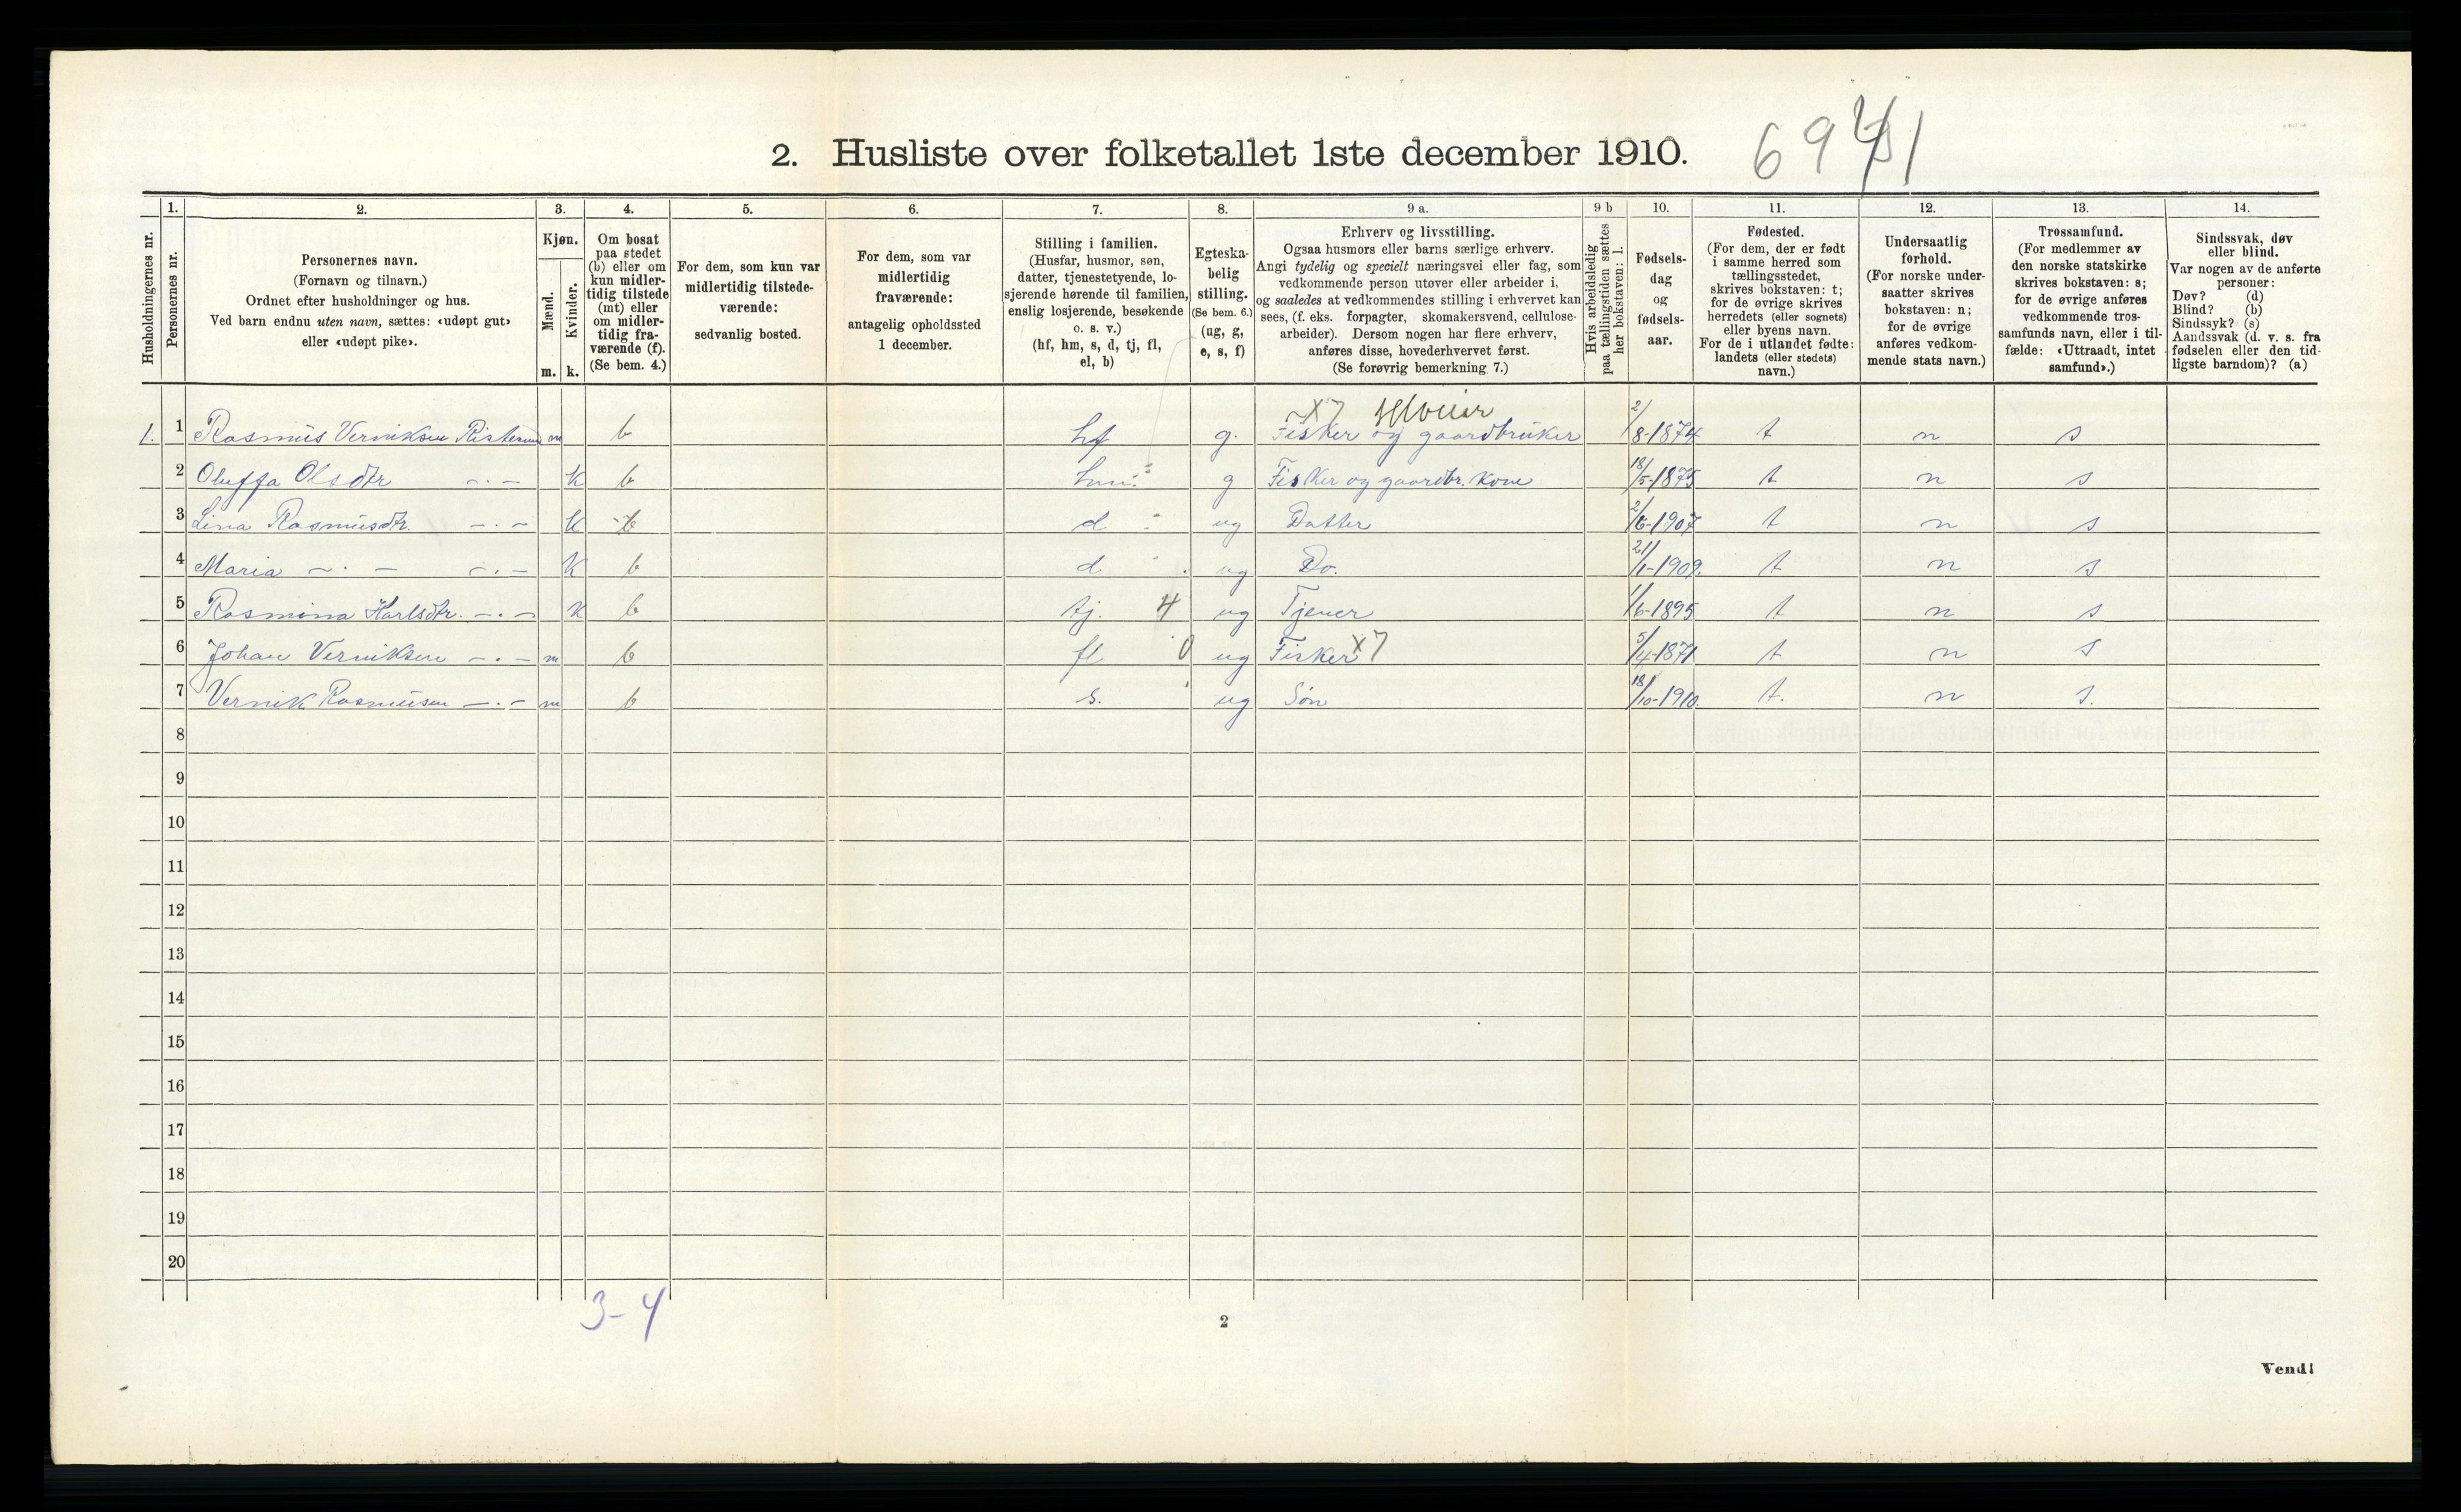 2. Husliste over folketallet 1ste december 1910.
69
1. 2. 3. 4. 5. 6. 7. 8. 9 a. 9 b 10. 11. 12. 13. 14.
Husholdningernes nr.
Personernes nr.
Personernes navn.
(Fornavn og tilnavn.)
Ordnet efter husholdninger og hus.
Ved barn endnu uten navn, sættes: «udøpt gut»
eller «udøpt pike».
Kjøn.
Mænd.
Kvinder.
m. k.
Om bosat
paa stedet
(b) eller om
kun midler-
tidig tilstede
(mt) eller
om midler-
tidig fra-
værende (f).
(Se bem. 4.)
For dem, som kun var
midlertidig tilstede-
værende:
sedvanlig bosted.
For dem, som var
midlertidig
fraværende:
antagelig opholdssted
1 december.
Stilling i familien.
(Husfar, husmor, søn,
datter, tjenestetyende, lo-
sjerende hørende til familien,
enslig losjerende, besøkende
o. s. v.)
(hf, hm, s, d, tj, fl,
el, b)
Egteska-
belig
stilling.
(Se bem. 6.)
(ug, g,
e, s, f)
Erhverv og livsstilling.
Ogsaa husmors eller barns særlige erhverv.
Angi tydelig og specielt næringsvei eller fag, som
vedkommende person utøver eller arbeider i,
og saaledes at vedkommendes stilling i erhvervet kan
sees, (f. eks. forpagter, skomakersvend, cellulose-
arbeider). Dersom nogen har flere erhverv,
anføres disse, hovederhvervet først.
(Se forøvrig bemerkning 7.)
Hvis arbeidsledig
paa tællingstiden sættes
her bokstaven: l.
Fødsels-
dag
og
fødsels-
aar.
Fødested.
(For dem, der er født
i samme herred som
tællingsstedet,
skrives bokstaven: t;
for de øvrige skrives
herredets (eller sognets)
eller byens navn.
For de i utlandet fødte:
landets (eller stedets)
navn.)
Undersaatlig
forhold.
(For norske under-
saatter skrives
bokstaven: n;
for de øvrige
anføres vedkom-
mende stats navn.)
Trossamfund.
(For medlemmer av
den norske statskirke
skrives bokstaven: s;
for de øvrige anføres
vedkommende tros-
samfunds navn, eller i til-
fælde: «Uttraadt, intet
samfund».)
Sindssvak, døv
eller blind.
Var nogen av de anførte
personer:
Døv? (d)
Blind? (b)
Sindssyk? (s)
Aandssvak (d. v. s. fra
fødselen eller den tid-
ligste barndom)? (a)
X7 Selveier
1. 1 Rasmus Verniksen m b hf g. Fisker og gaardbruker 2/8-1874 t n s
2 Oluffa Olsdtr -.- k b hm. g Fisker og gaardbr. kone 18/5-1875 t n s
3 Lina Rasmusdtr. -.- k b d ug Datter 2/6-1907 t n s
4 Maria -.- -.- k b d ug Do. 21/1-1909. t n s
5 Rasmina Karlsdtr. -.- k b tj. 4 ug Tjener 1/6-1895 t n s
6 Johan Verniksen -.- m b fl 0 ug Fisker X7 5/4-1871 t n s
7 Vernik Rasmusen -.- m b s. ug Søn 18/10-1910. t. n s.
8
9
10
11
12
13
14
15
16
17
18
19
20
3-4
2
Vend!